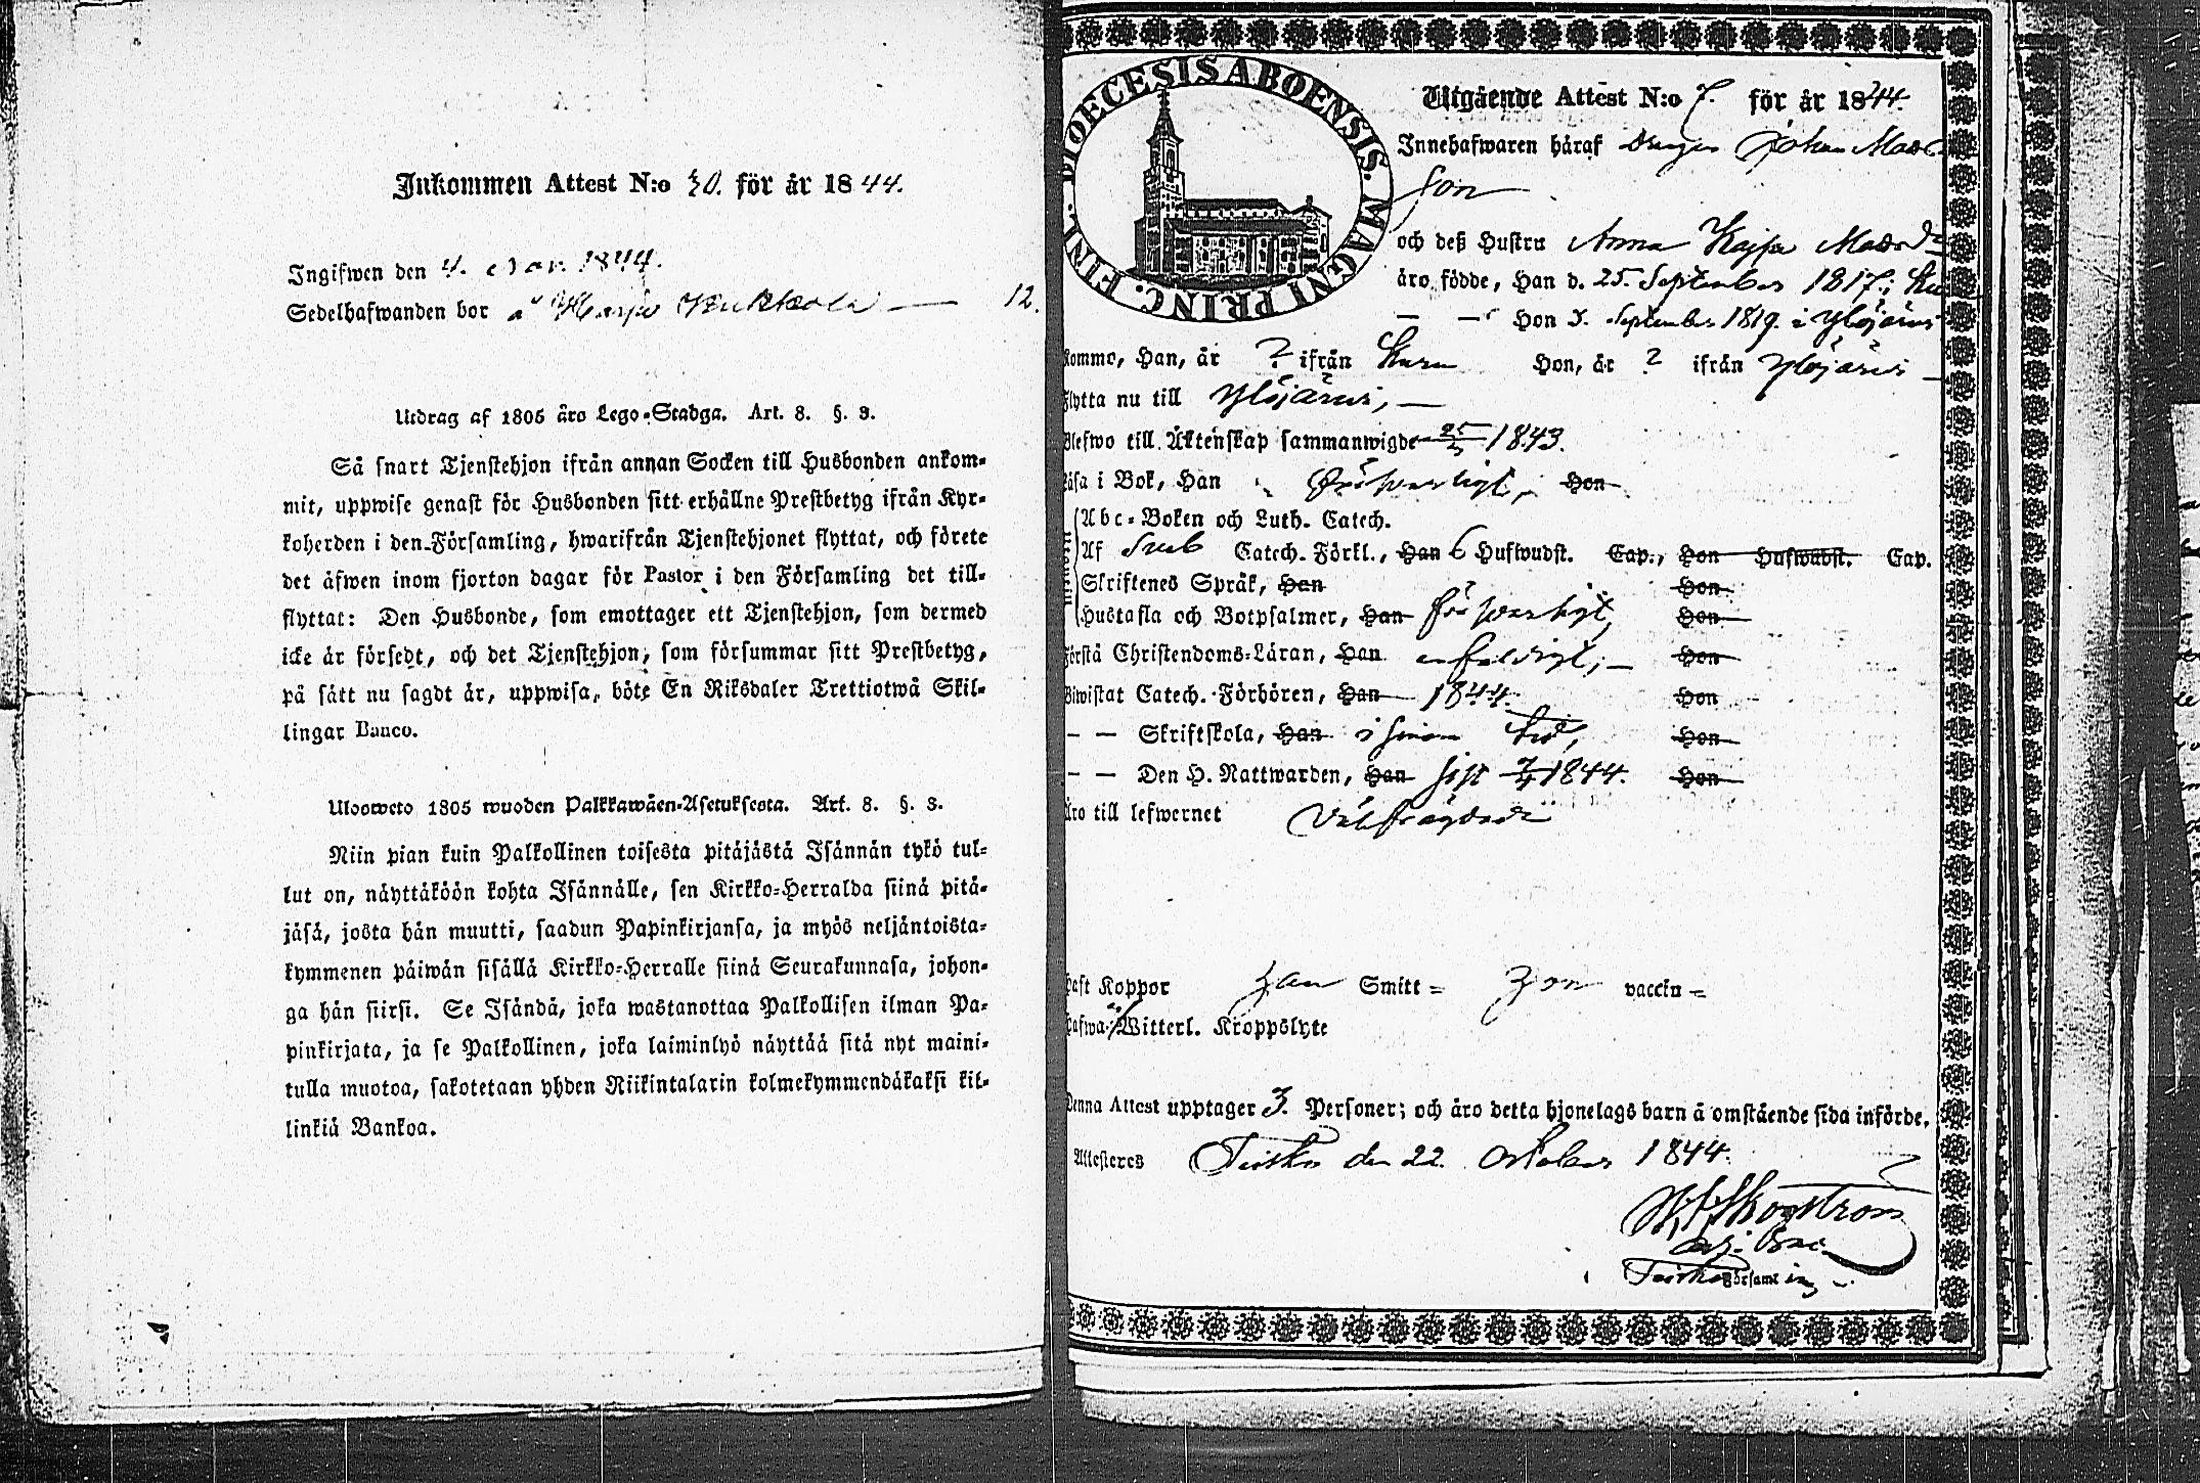 Inkommen Attest N:o 30. för år 1844.
Ingifwen den 4. Nov. 1844.
Sedelhafwanden bor å Harju 12.
Utdrag af 1805 års Lego-Stadga. Art. 8. §. 3.
Så snart Tjenstehjon ifrån annan Socken till Husbonden ankom-
mit, uppwise genast för Husbonden sitt erhållne Prestbetyg ifrån Kyr-
koherden i den Församling, hwarifrån Tjenstehjonet flyttat, och förete
det äfwen inom fjorton dagar för Pastor i den Församling det till-
flyttat: Den Husbonde, som emottager ett Tjenstehjon, som dermed
icke är försedt, och det Tjenstehjon, som försummar sitt Prestbetyg,
på sätt nu sagdt är, uppwisa, böte En Riksdaler Trettiotwå Skil-
lingar Banco.
Ulosweto 1805 wuoden Palkkawäen-Asetuksesta. Art. 8. §. 3.
Niin pian kuin Palkollinen toisesta pitäjästä Isännän tykö tul-
lut on, näyttäköön kohta Isännälle, sen Kirkko-Herralda siinä pitä-
jäsä, josta hän muutti, saadun Papinkirjansa, ja myös neljäntoista-
kymmenen päiwän sisällä Kirkko-Herralle siinä Seurakunnasa, johon-
ga hän siirsi. Se Isändä, joka wastanottaa Palkollisen ilman Pa-
pinkirjata, ja se Palkollinen, joka laiminlyö näyttää sitä nyt maini-
tulla muotoa, sakotetaan yhden Riikintalarin kolmekymmendäkaksi kil-
linkiä Bankoa.
DIOECESIS ABOENSIS. MAGNI PRINC. FINL.
Utgående Attest N:o 7. för år 1844.
Innehafwaren häraf Drengen Johan Mats
son
och deß Hustru Anna Kajsa Matsdr
äro födde, Han d. 25. September 1817. i Ku
— — Hon 3. September 1819. i Ylöjärwi
komme, Han, år ? ifrån Kuru Hon, år ? ifrån Ylöjärwi —
flytta nu till Ylöjärwi, —
Blefwo till Äktenskap sammanwigde 1843.
läsa i Bok, Han försvarligt, Hon
Abc-Boken och Luth. Catech.
Af Sveb Catech. Förkl., Han 6 Hufwudst. Cap., Hon Hufwudst. Cap.
Skriftenes Språk, Han Hon
Hustafla och Botpsalmer, Han försvarligt, Hon
förstå Christendoms-Läran, Han enfaldigt; — Hon
Biwistat Catech. Förhören, Han 1844. Hon
— — Skriftskola, Han i sinom tid, Hon
— — Den H. Nattwarden, Han sist 7/4 1844. Hon
äro till lefwernet Välfrägdade
haft Koppor Han Smitt = Hon vaccin =
hafwa Witterl. Kroppslyte
Denna Attest upptager 3. Personer; och äro detta hjonelags barn å omstående sida införde.
Attesteres Teisko den 22. October 1844.
Skogström
Adj.
Teisko Församling